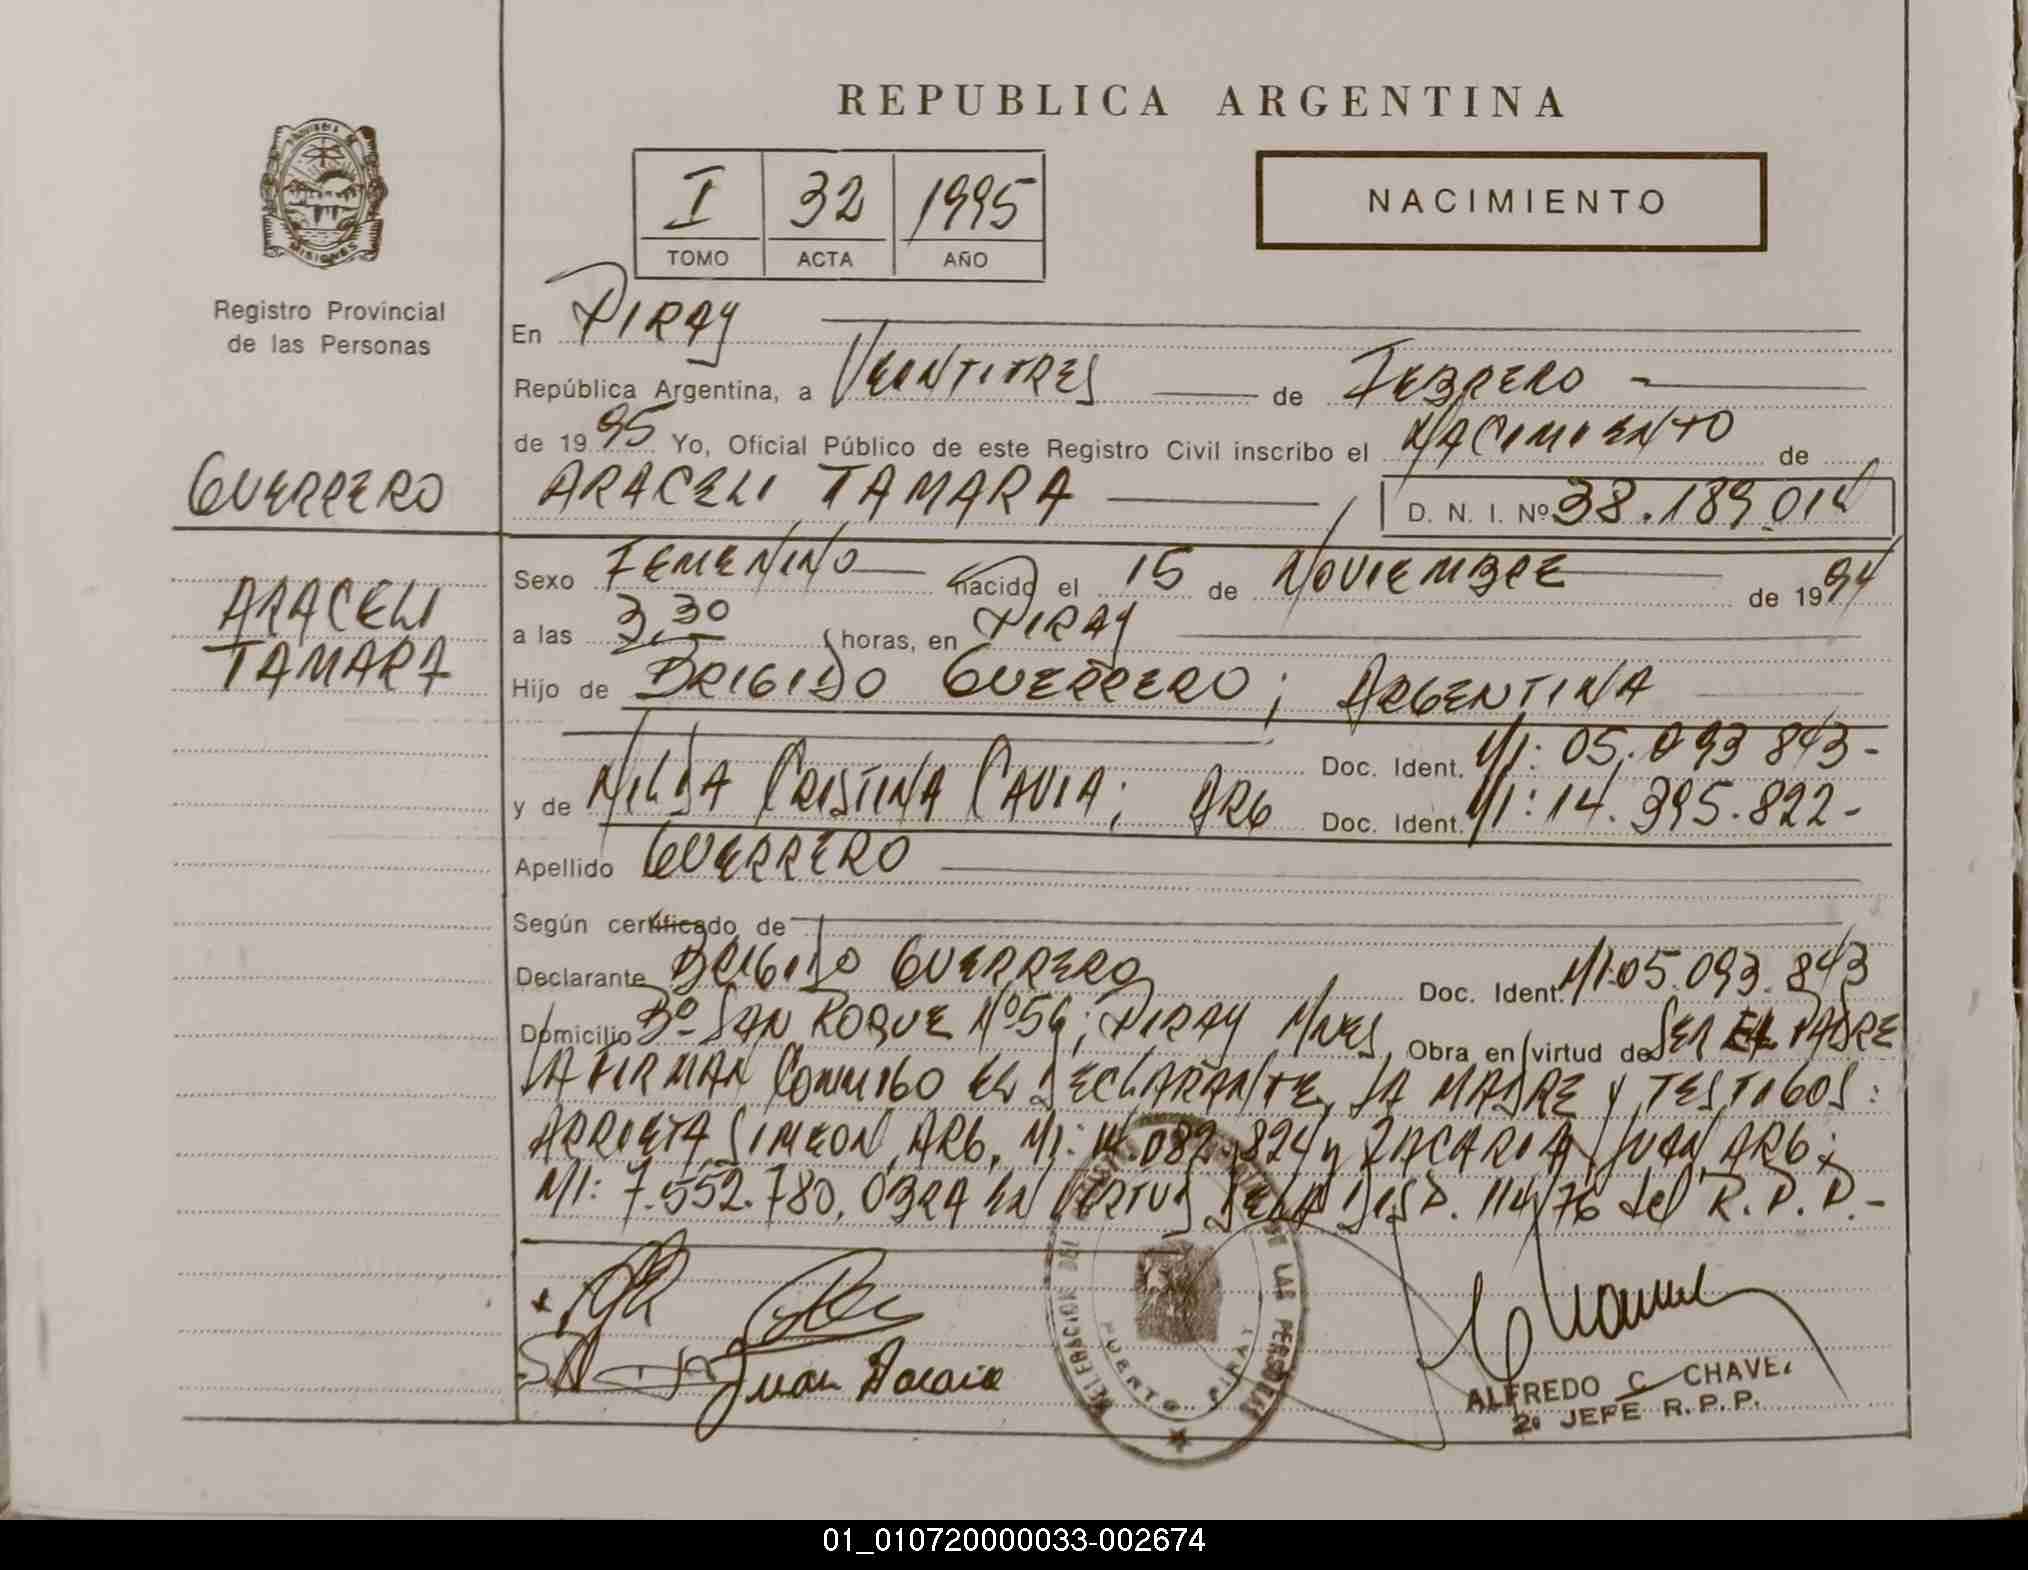 REPUBLICA ARGENTINA
PROVINCIA DE
MISIONES
I 32 1995
TOMO ACTA AÑO
NACIMIENTO
Registro Provincial
de las Personas
En PIRAY
República Argentina, a VEINTITRES de FEBRERO
de 1995 Yo, Oficial Público de este Registro Civil inscribo el NACIMIENTO de
GUERRERO
ARACELI TAMARA D. N. I. Nº 38.189.014
ARACELI
TAMARA
Sexo FEMENINO nacido el 15 de NOVIEMBRE de 1994
a las 3,30 horas, en PIRAY
Hijo de BRIGIDO GUERRERO; ARGENTINA
Doc. Ident. MI: 05.093 843-
y de NILDA CRISTINA CAVIA; ARG Doc. Ident. MI: 14.395.822-
Apellido GUERRERO
Según certificado de
Declarante BRIGIDO GUERRERO Doc. Ident. MI.05.093.843
Domicilio Bº SAN ROQUE Nº56; PIRAY MNES, Obra en virtud de SER EL PADRE
FIRMAN CONMIGO EL DECLARANTE, LA MADRE Y TESTIGOS:
ARRIETA SIMEON, ARG, MI: 14.082.824 y ZACARIA JUAN, ARG;
MI: 7.552.780, OBRA EN VIRTUD DE LA DISP. 114/76 del R.P.P.-
Juan
DELEGACION DEL REGISTRO PROVINCIAL DE LAS PERSONAS
PUERTO PIRAY
ALFREDO C. CHAVEZ
2º JEFE R.P.P.
01_010720000033-002674